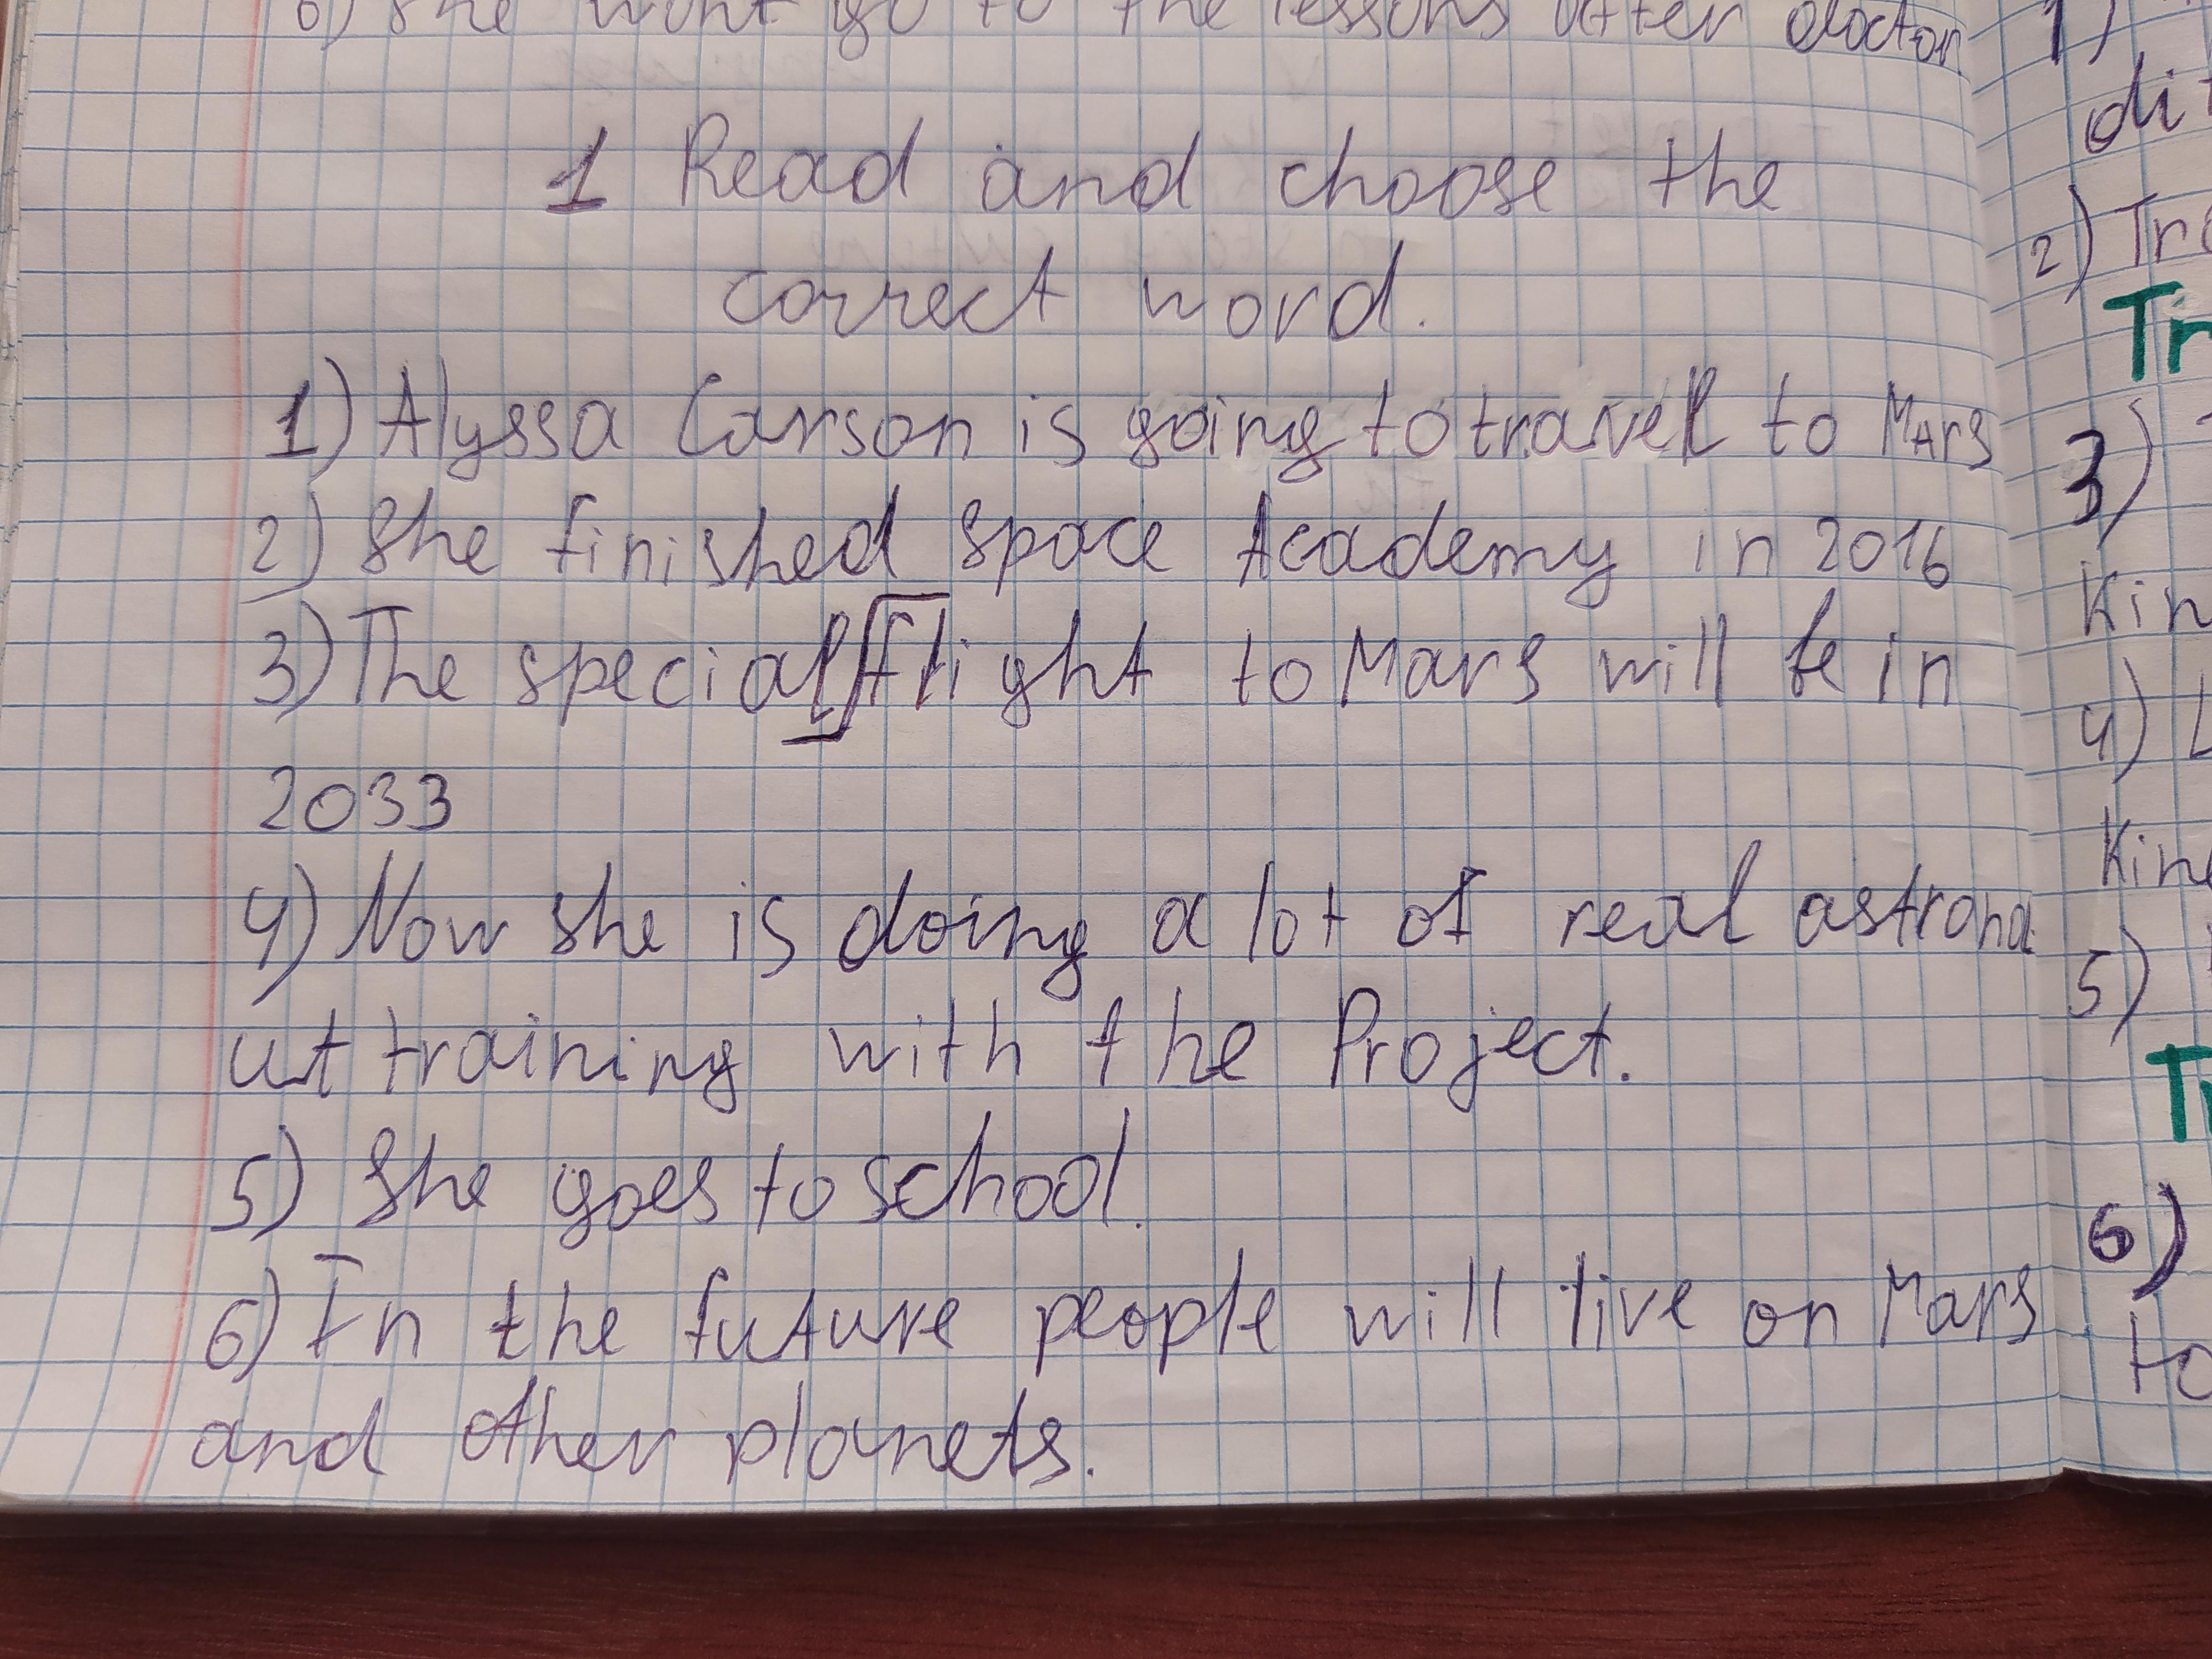 6) She wont go to the lessons after doctor
1 Read and choose the
correct word.
1) Alyssa Carson is going to travel to Mars
2) She finished Space Academy in 2016
3) The special flight to Mars will be in
2033
4) Now she is doing a lot of real astrona
ut training with the Project.
5) She goes to school.
6) In the future people will live on Mars
and other planets.
1)
2)
3)
4)
5)
6)